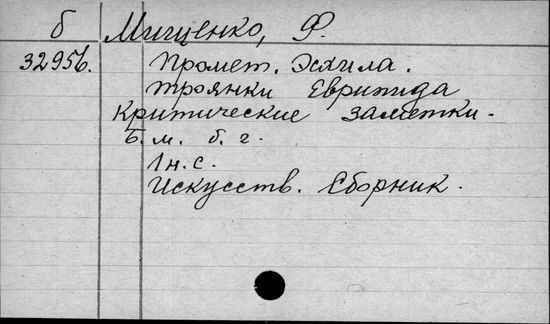 б Мищенко, Ф.
32956. Промет. Эсхила.
Троянки Еврипида
Критические заметки.
Б. м. б. г.
1 н. с.
Искусств. Сборник.